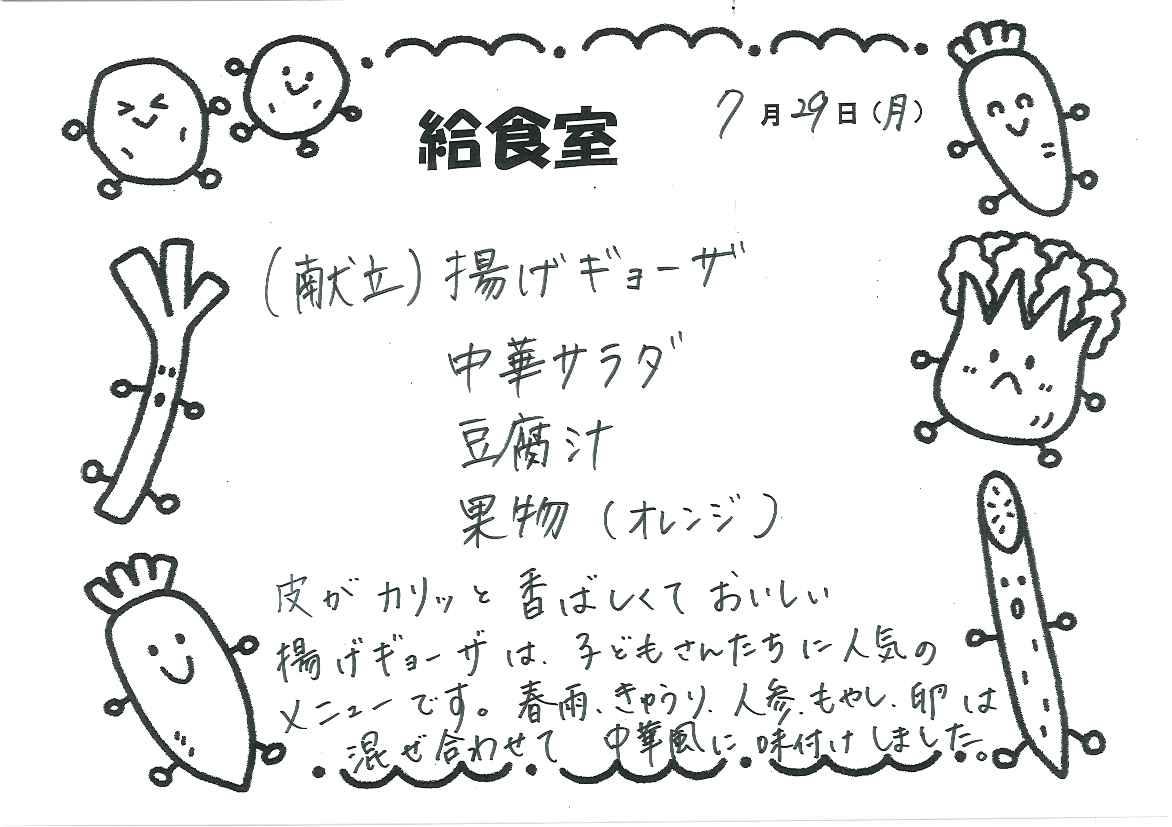 給食室
7月29日(月)
(献立)揚げギョーザ
中華サラダ
豆腐汁
果物(オレンジ)
皮がカリッと香ばしくておいしい
揚げギョーザは、子どもさんたちに人気の
メニューです。春雨、きゅうり、人参、もやし、卵は
混ぜ合わせて 中華風に味付けしました。